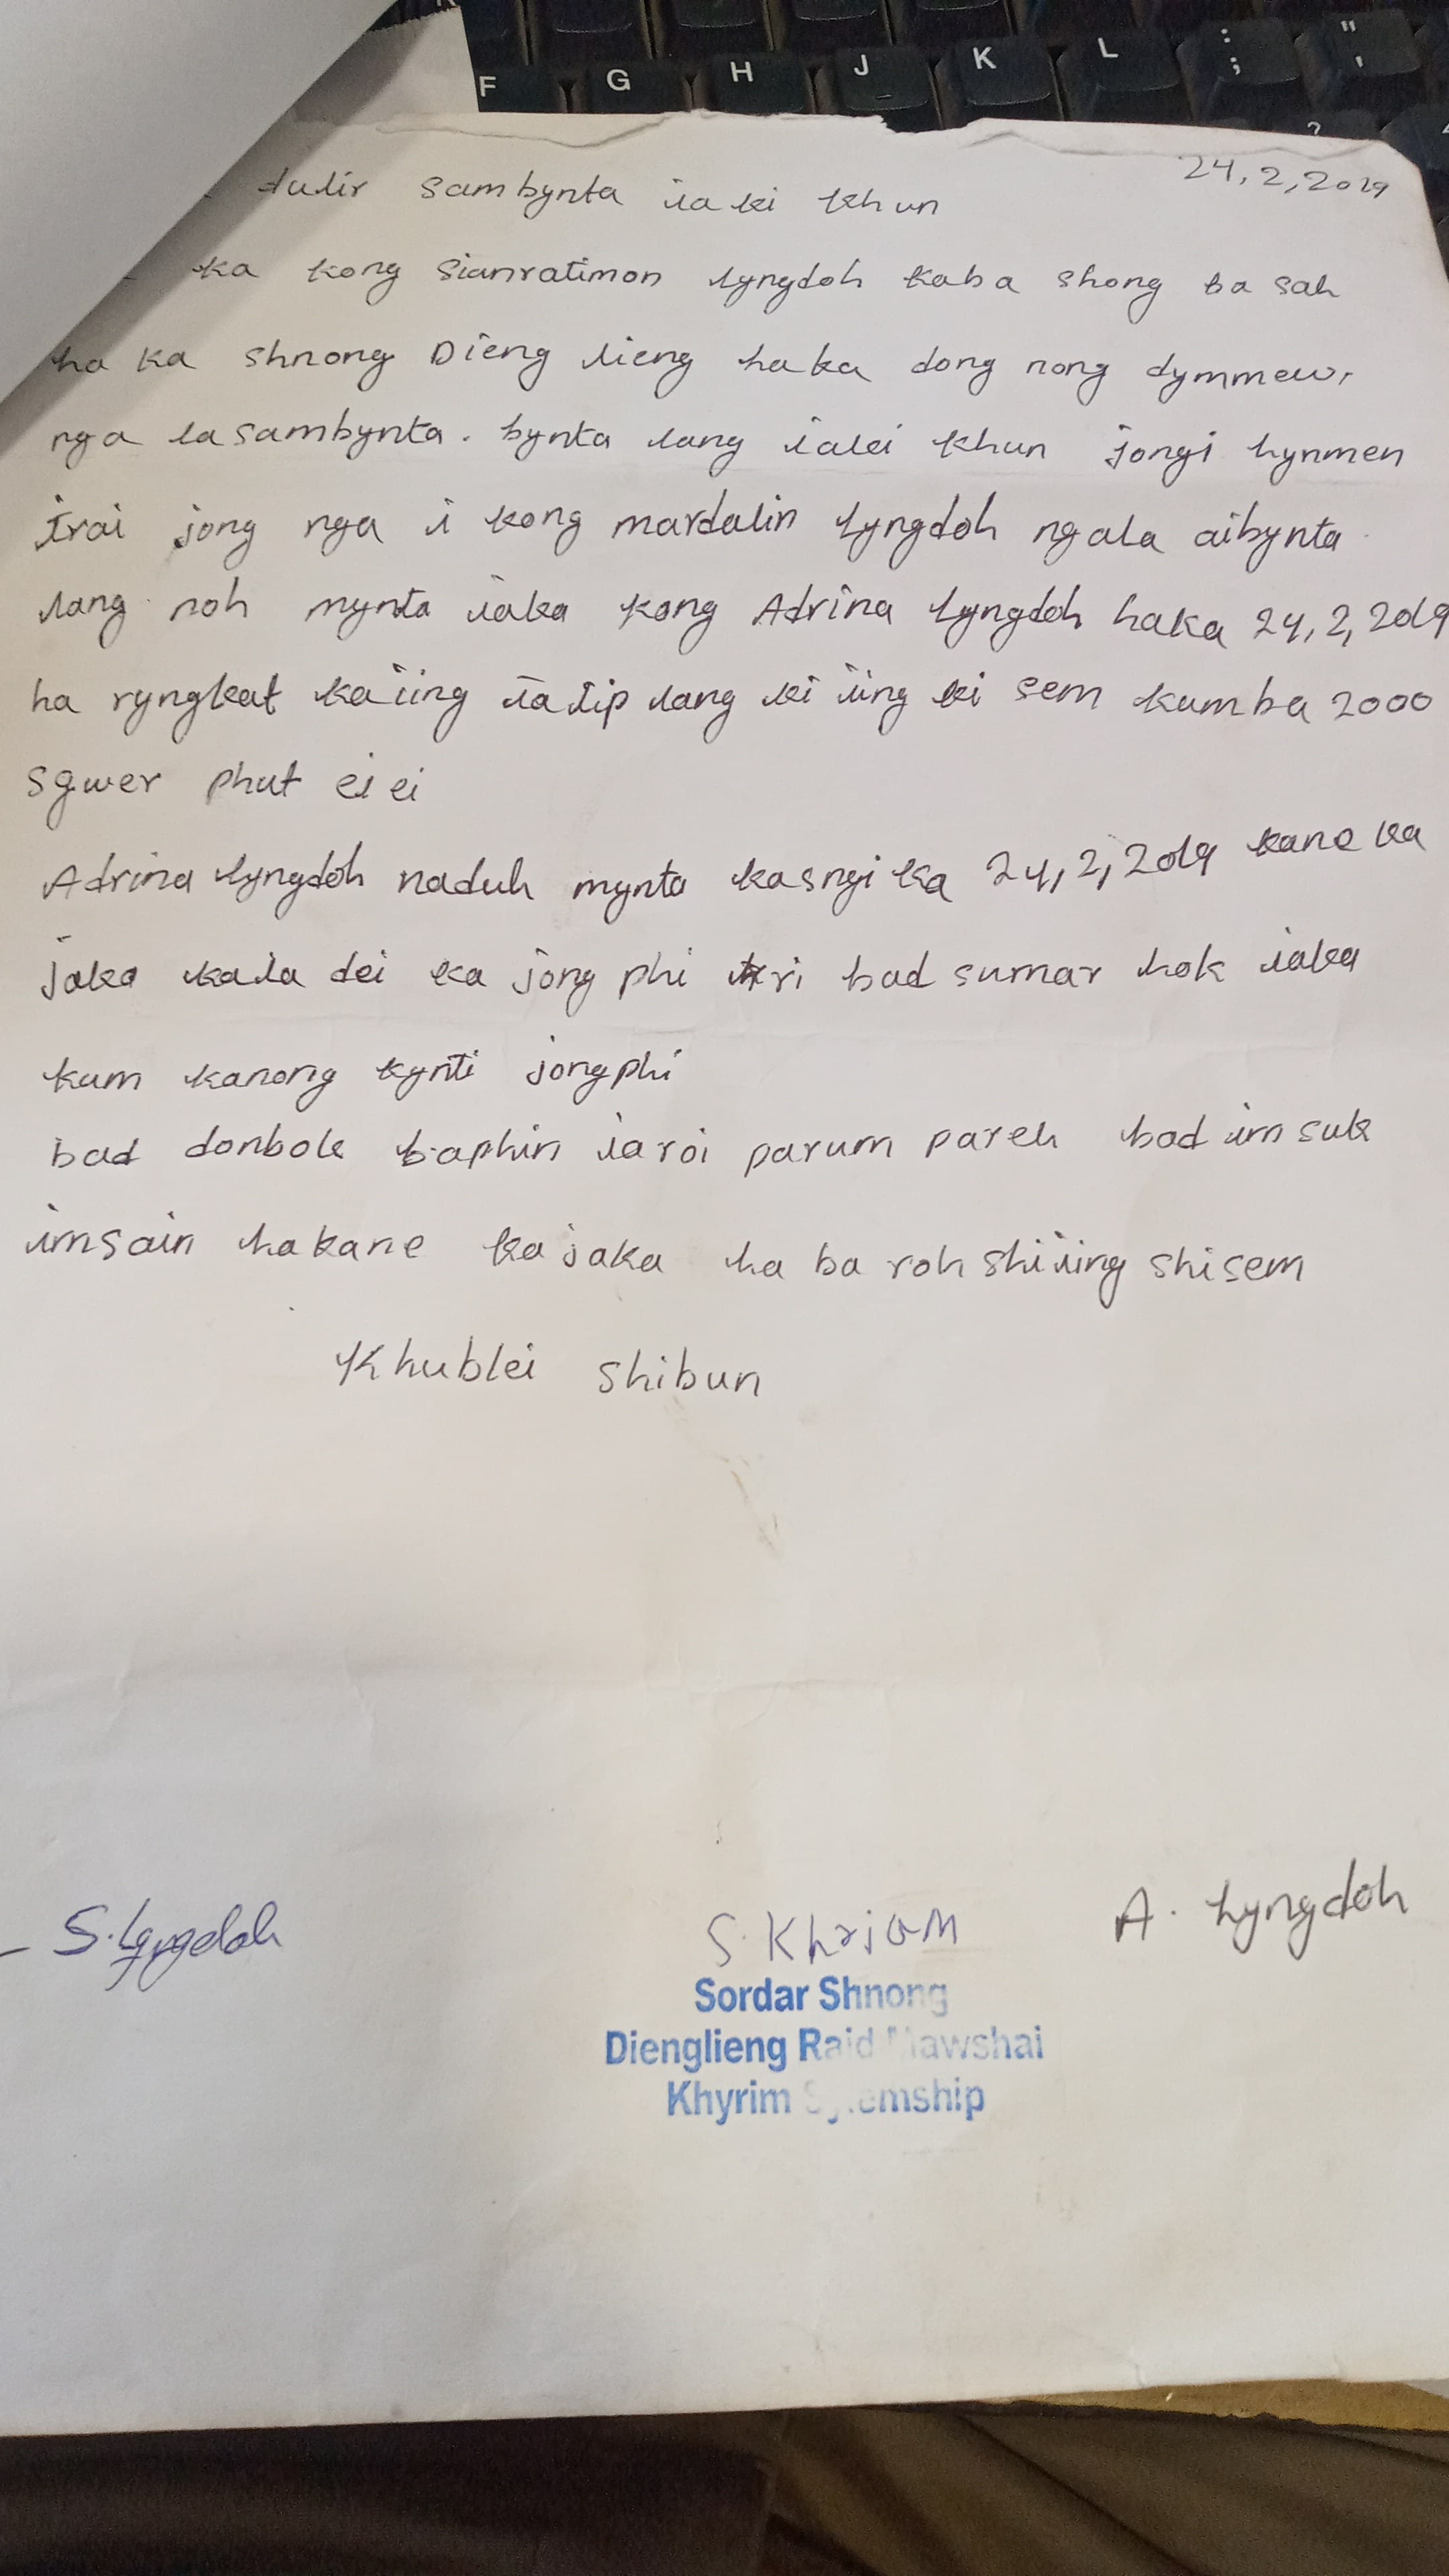 24,2,2019
dulir sambynta ia ki khun
ka kong Sianratimon lyngdoh kaba shong ba sah
ha ka shnong Dieng lieng haka dong nong dymmew,
nga la sambynta. bynta lang ialei khun jongi hynmen
trai jong nga i kong mardalin lyngdoh ngala aibynta
lang noh mynta iaka kong Adrina lyngdoh haka 24,2,2019
ha ryngkat kaiing iatip lang ki iing ki sem kumba 2000
sgwer phut ei ei
Adrina lyngdoh naduh mynta kasngi ka 24,2,2019 kane ka
jaka kala dei ka jong phi ri bad sumar hok iaka
kum kanong kynti jongphi
bad donbok baphin iaroi parum pareh bad im suk
imsain hakane ka jaka ha ba roh shiiing shisem
Khublei shibun
S. Lyngdoh
S. Khrjam
A. Lyngdoh
Sordar Shnong
Dienglieng Raid Mawshai
Khyrim Syiemship